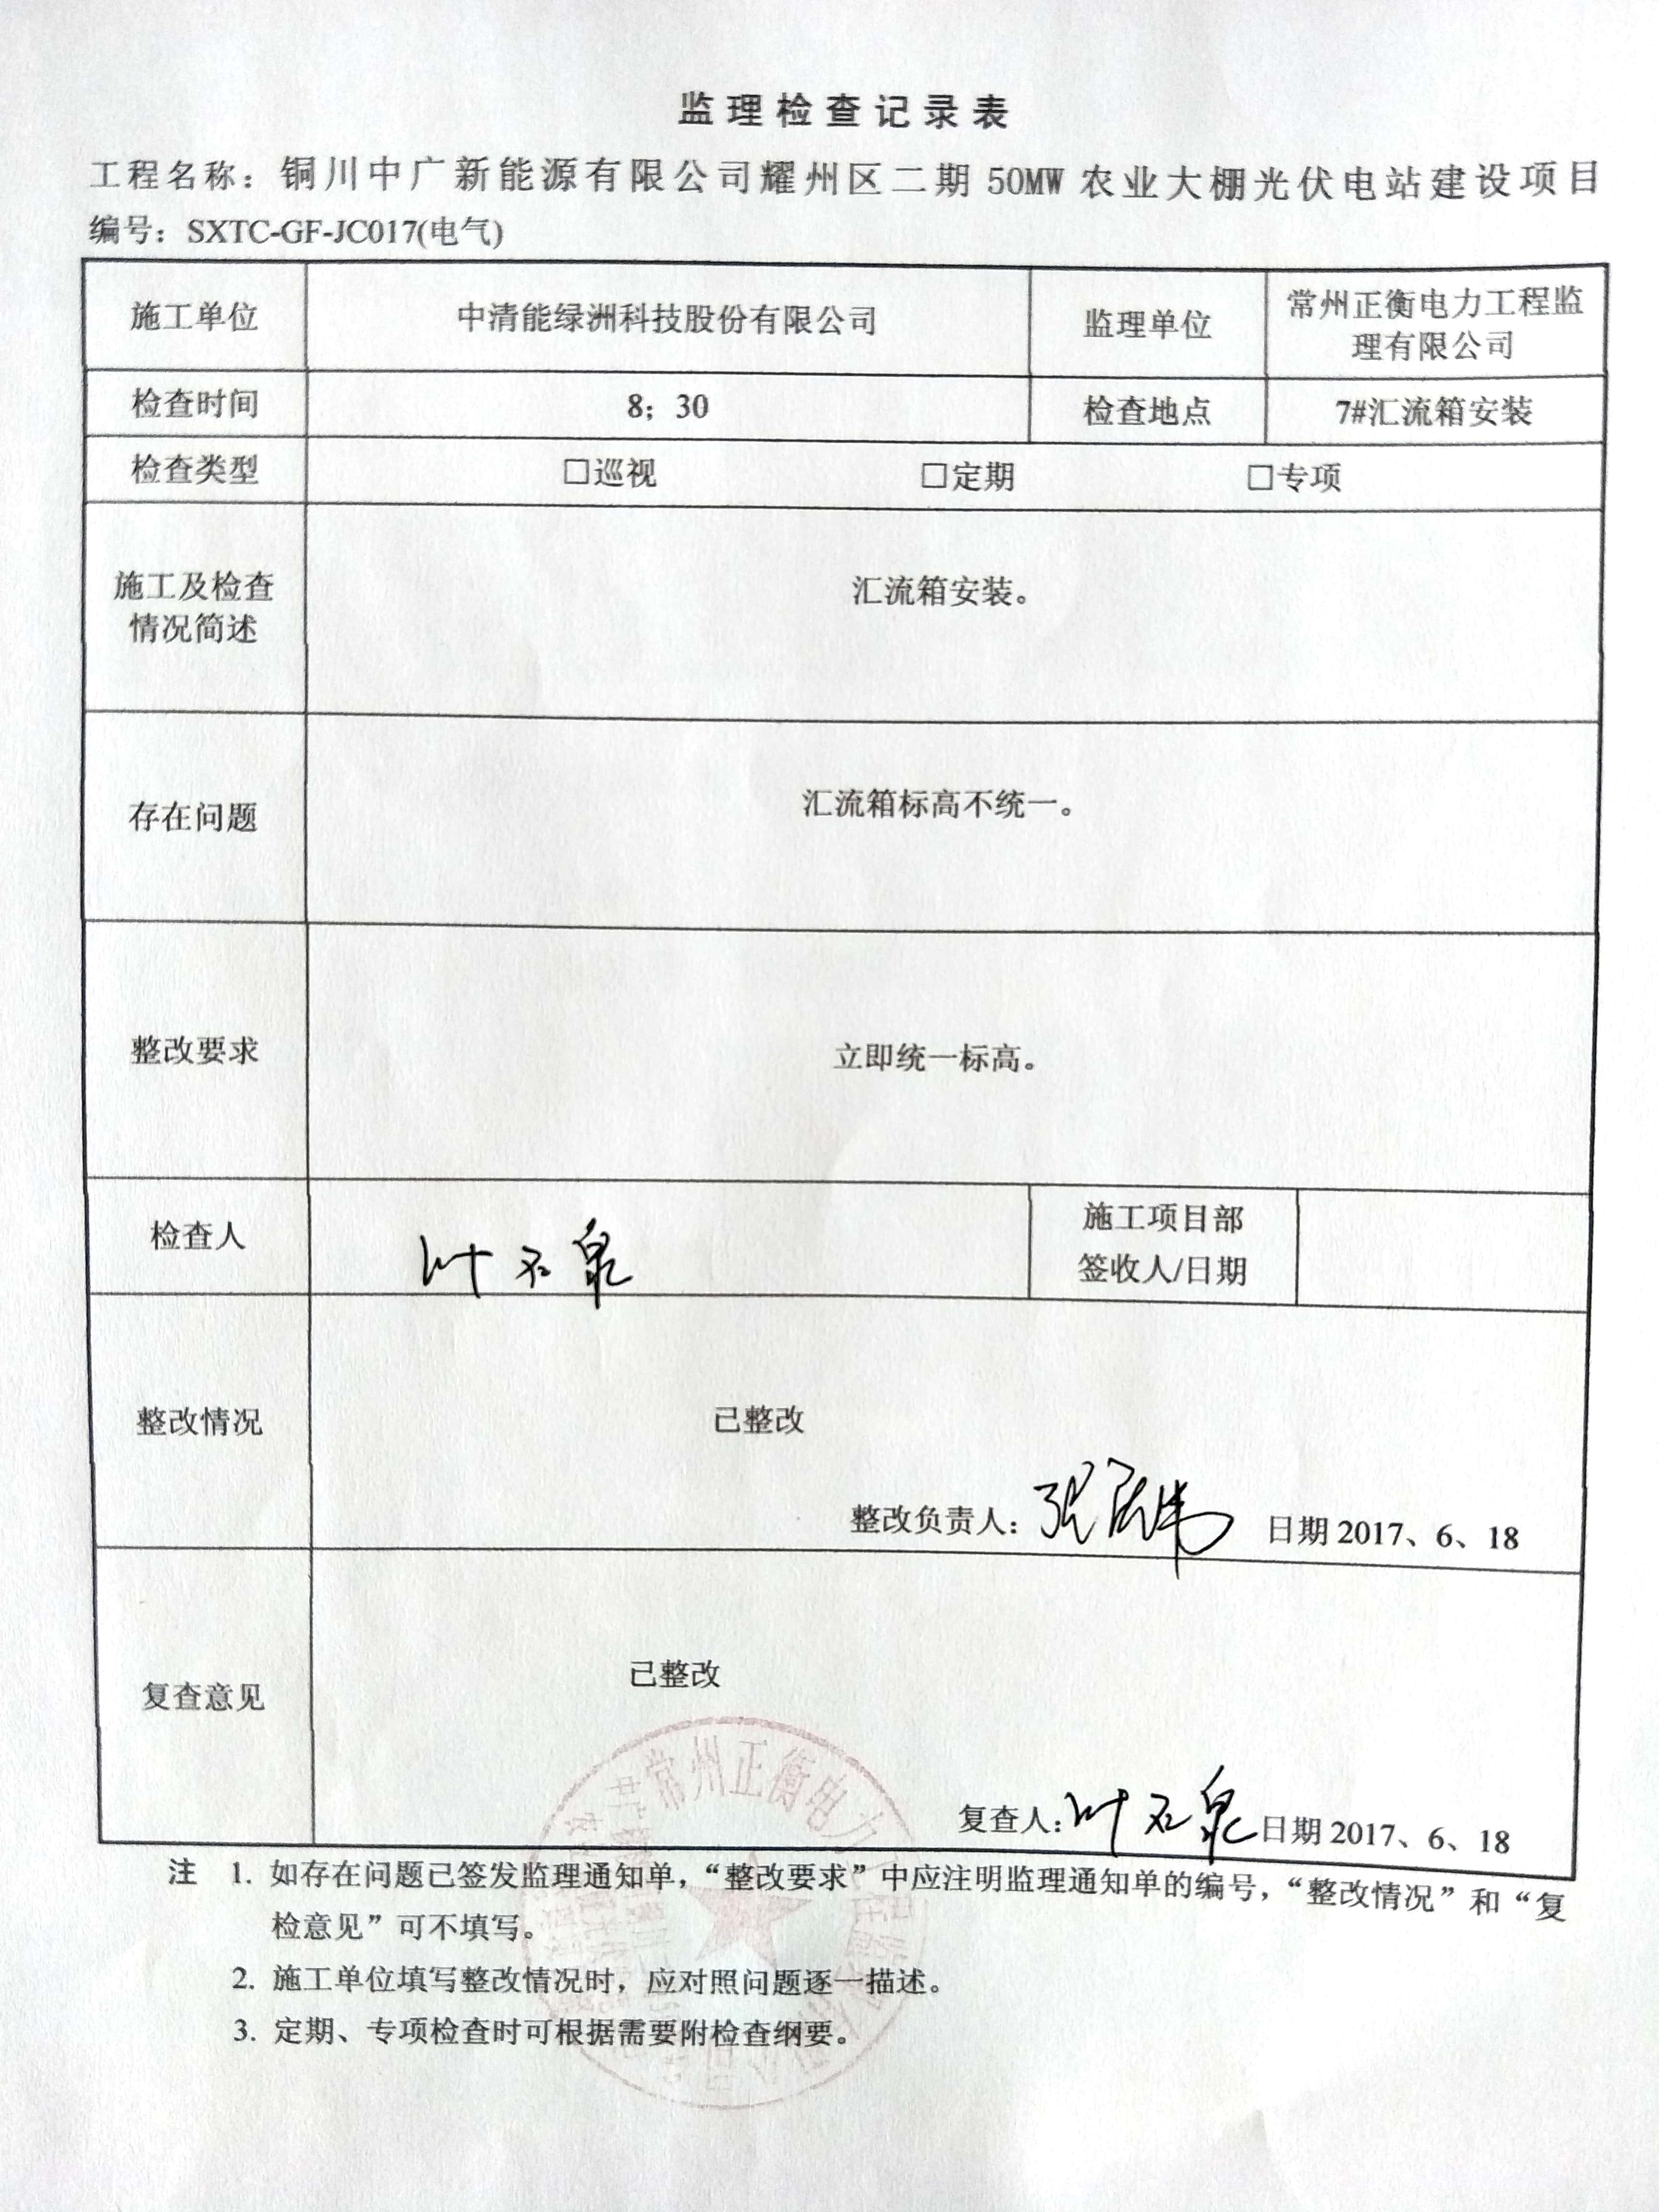 监理检查记录表
工程名称：铜川中广新能源有限公司耀州区二期 50MW 农业大棚光伏电站建设项目
编号：SXTC-GF-JC017(电气)
施工单位
中清能绿洲科技股份有限公司
监理单位
常州正衡电力工程监
理有限公司
检查时间
8；30
检查地点
7#汇流箱安装
检查类型
□巡视 □定期 □专项
施工及检查
情况简述
汇流箱安装。
存在问题
汇流箱标高不统一。
整改要求
立即统一标高。
检查人
叶石泉
施工项目部
签收人/日期
整改情况
已整改
整改负责人： 日期 2017、6、18
复查意见
已整改
复查人：叶石泉 日期 2017、6、18
常州正衡电力
注 1. 如存在问题已签发监理通知单，“整改要求”中应注明监理通知单的编号，“整改情况”和“复
检意见”可不填写。
2. 施工单位填写整改情况时，应对照问题逐一描述。
3. 定期、专项检查时可根据需要附检查纲要。